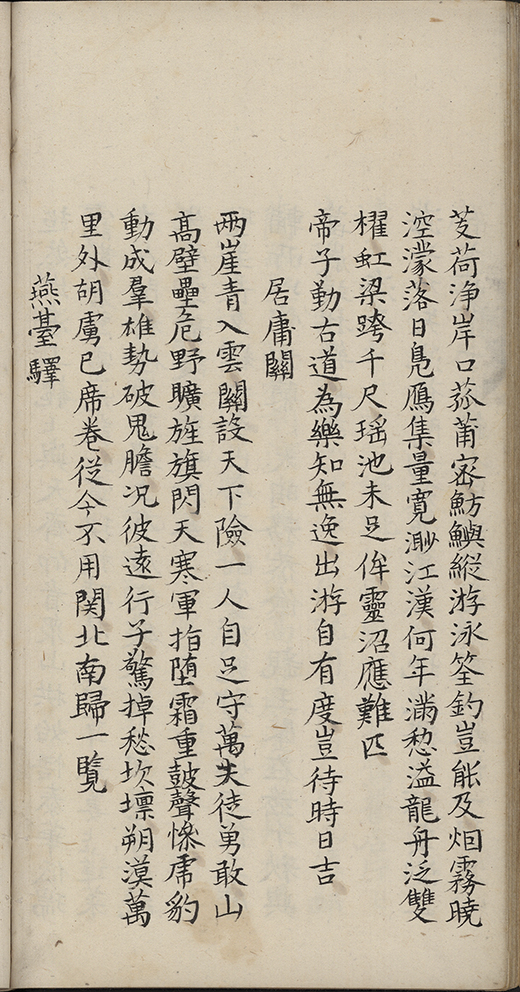 芰荷浄岸口菰莆宻魴鱮縱游泳筌釣豈能及烟霧曉
涳濛落日鳧鴈集量寛渺江漢何年滿愁溢龍舟泛雙
櫂虹梁跨千尺瑶池未足侔靈沼應難匹
帝子勤古道為樂知無逸出游自有度豈待時日吉
居庸關
兩崖青入雲關設天下險一人自足守萬夫徒勇敢山
高壁壘危野曠旌旗閃天寒軍指堕霜重鼓聲慘虎豹
動成羣雄勢破鬼膽况彼逺行子驚掉愁坎壈朔漠萬
里外胡虜已席卷從今不用関北南歸一覧
燕䑓驛